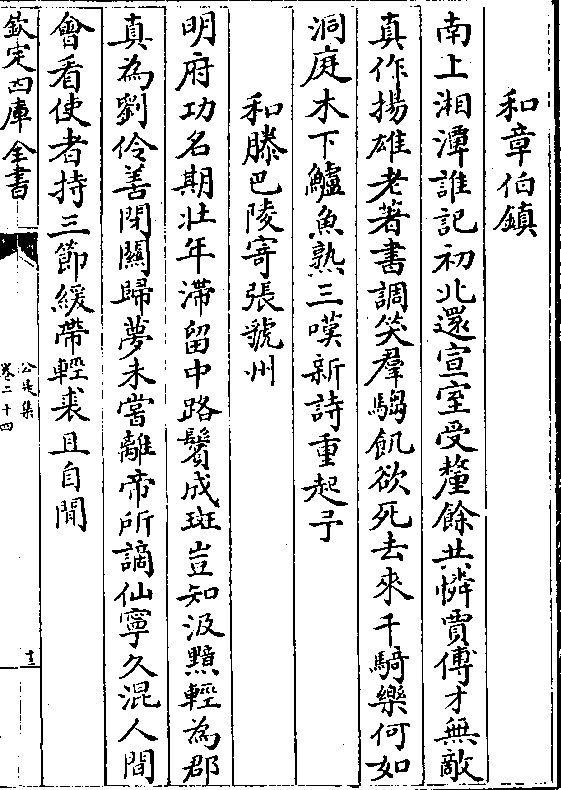 和章伯鎮
南上湘潭誰記初北還宣室受釐餘共憐賈傅才無敵
真作揚雄老著書調笑羣騶飢欲死去來千騎樂何如
洞庭木下鱸魚熟三嘆新詩重起予
和滕巴陵寄張虢州
明府功名期壯年滯留中路鬢成斑豈知汲黯輕為郡
真為劉伶善閉關歸夢未嘗離帝所謫仙寧久混人間
會看使者持三節緩帶輕裘且自閒
欽定四庫全書
公是集
卷二十四
十三